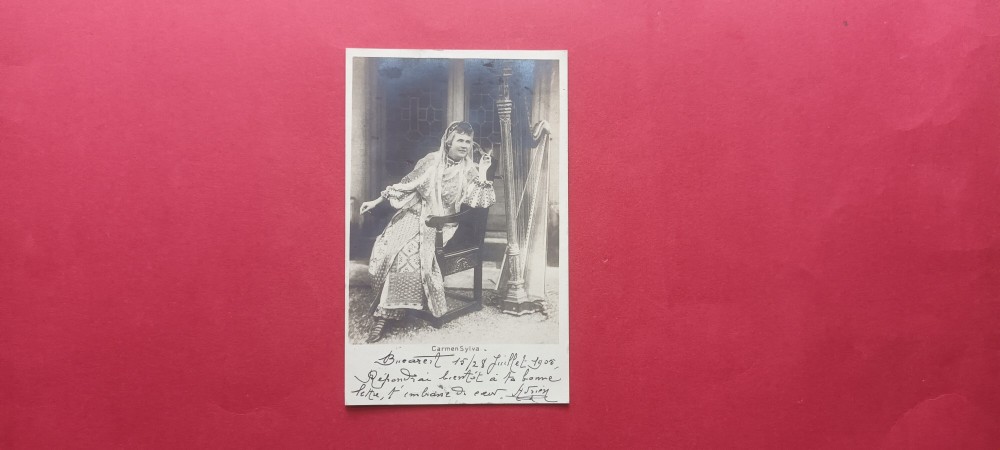 Carmen Sylva.
Bucarest 15/28 Juillet 1905,
Répondrai bientôt à ta bonne
lettre, t'embrasse de cœur.